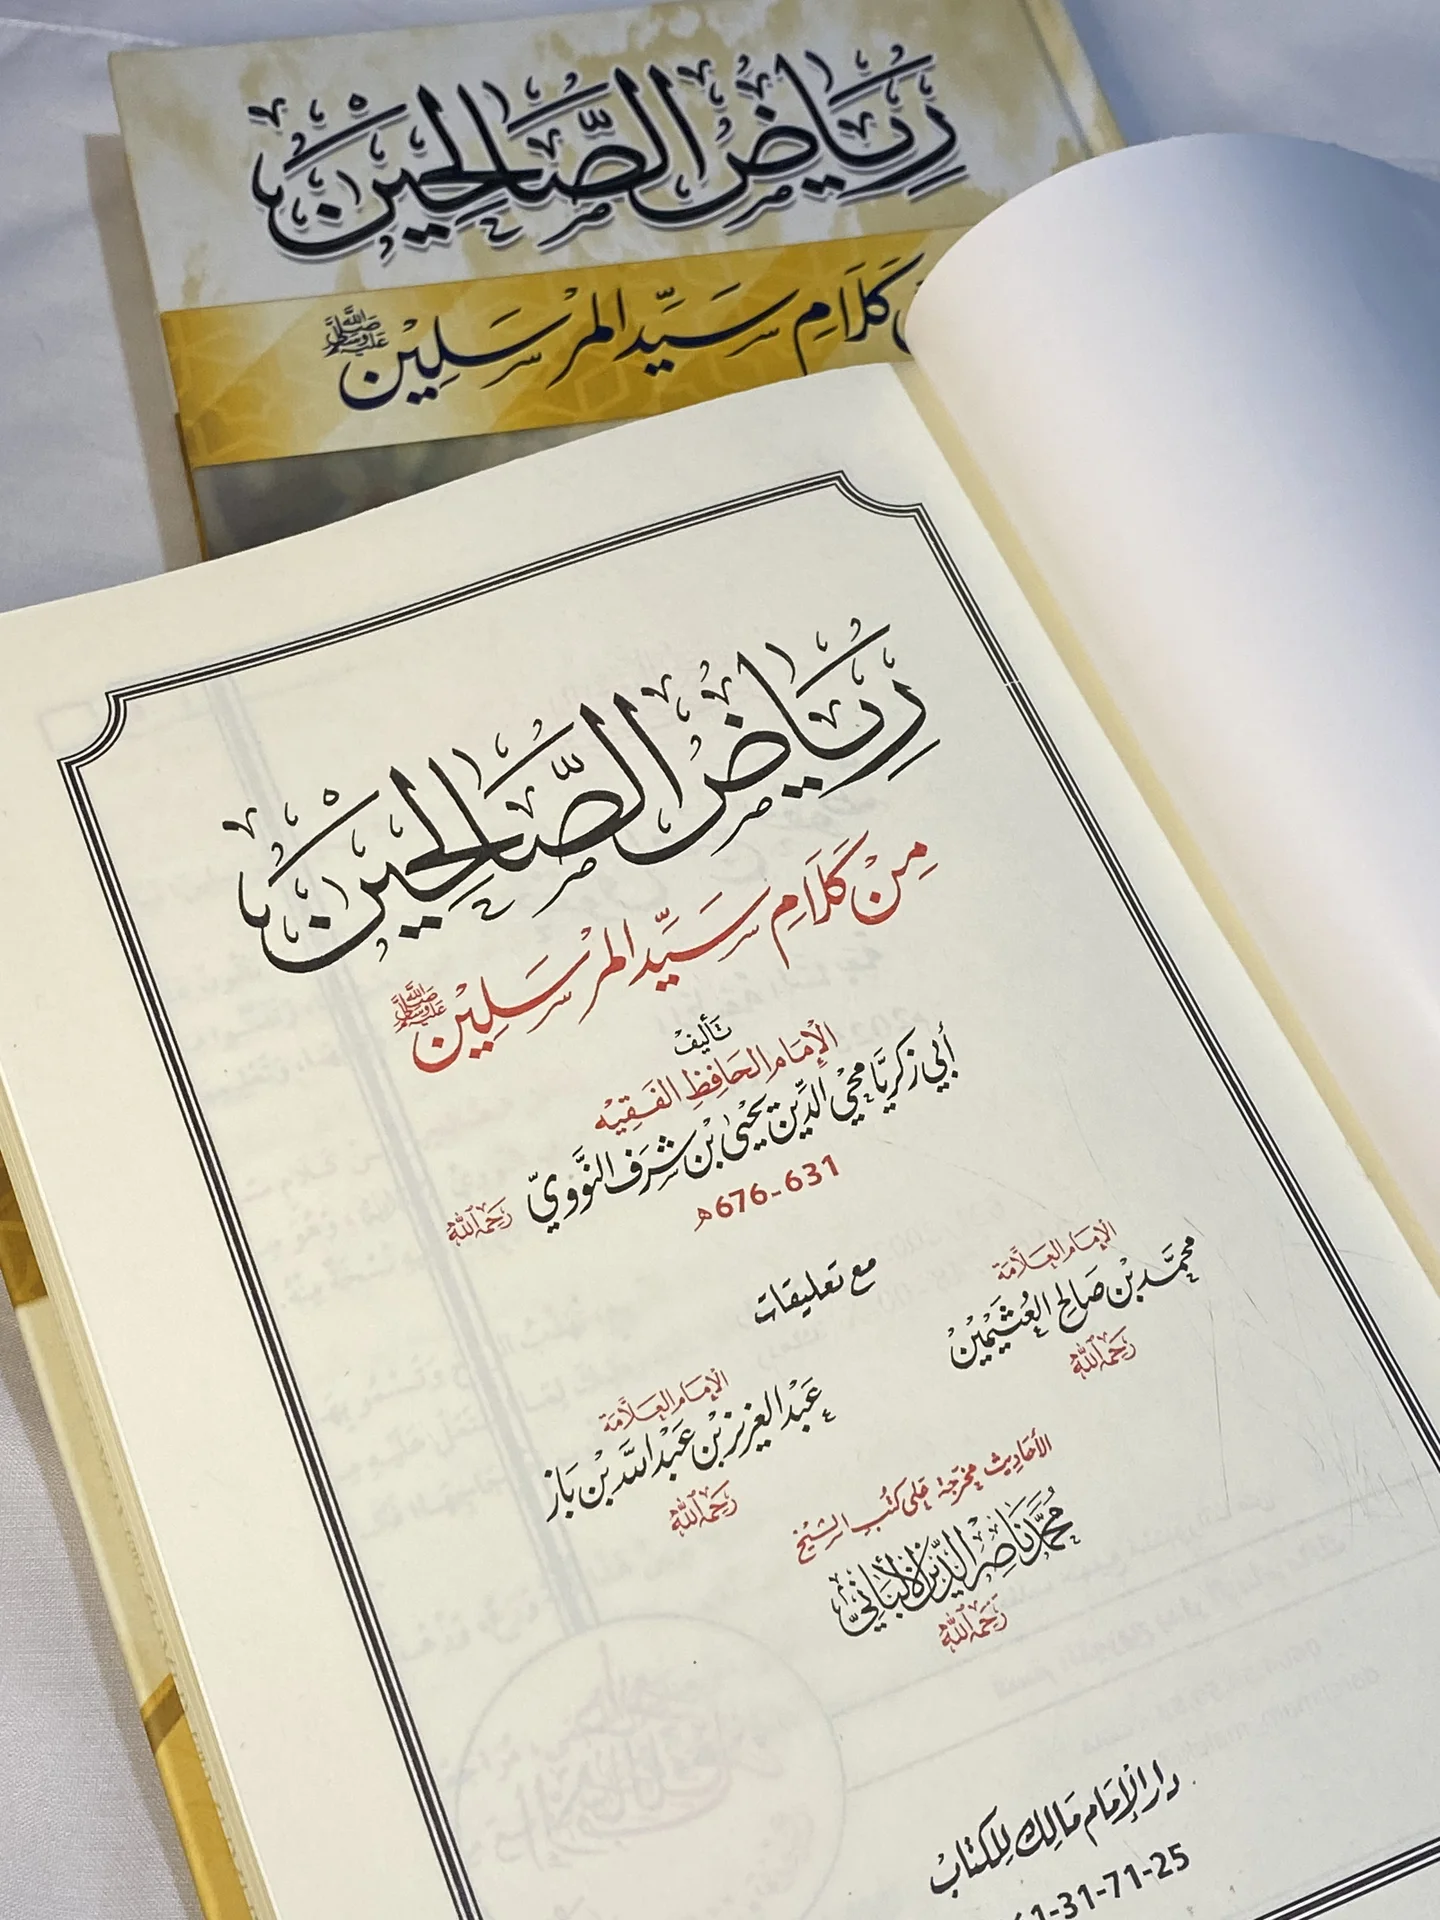 رِيَاضُ الصَّالِحِيْنَ
كَلَامِ سَيِّدِ المُرْسَلِيْنَ ﷺ
رِيَاضُ الصَّالِحِيْنَ
مِنْ كَلَامِ سَيِّدِ المُرْسَلِيْنَ ﷺ
تَأليفْ
الْإِمَامِ الحَافِظِ الفَقِيْهِ
أَبِي زَكَرِيَّا مُحْيِي الدِّيْنِ يَحْيَى بْنِ شَرَفِ النَّوَوِيّ رَحِمَهُ اللَّهُ
631-676هـ
مع تعليقات
الإِمَامِ العَلَّامَة
مُحَمَّد بْن صَالِح العُثَيْمِيْن
رَحِمَهُ اللَّهُ
الإِمَامِ العَلَّامَة
عَبْد العَزِيْز بْن عَبْد اللَّه بْن بَاز
رَحِمَهُ اللَّهُ
الأَحَادِيث مُخَرَّجَة عَلى كُتُبِ الشَّيْخِ
مُحَمَّد نَاصِر الدِّيْن الأَلْبَانِي
رَحِمَهُ اللَّهُ
دار الإِمَام مَالِك لِلْكِتَابْ
61-31-71-25